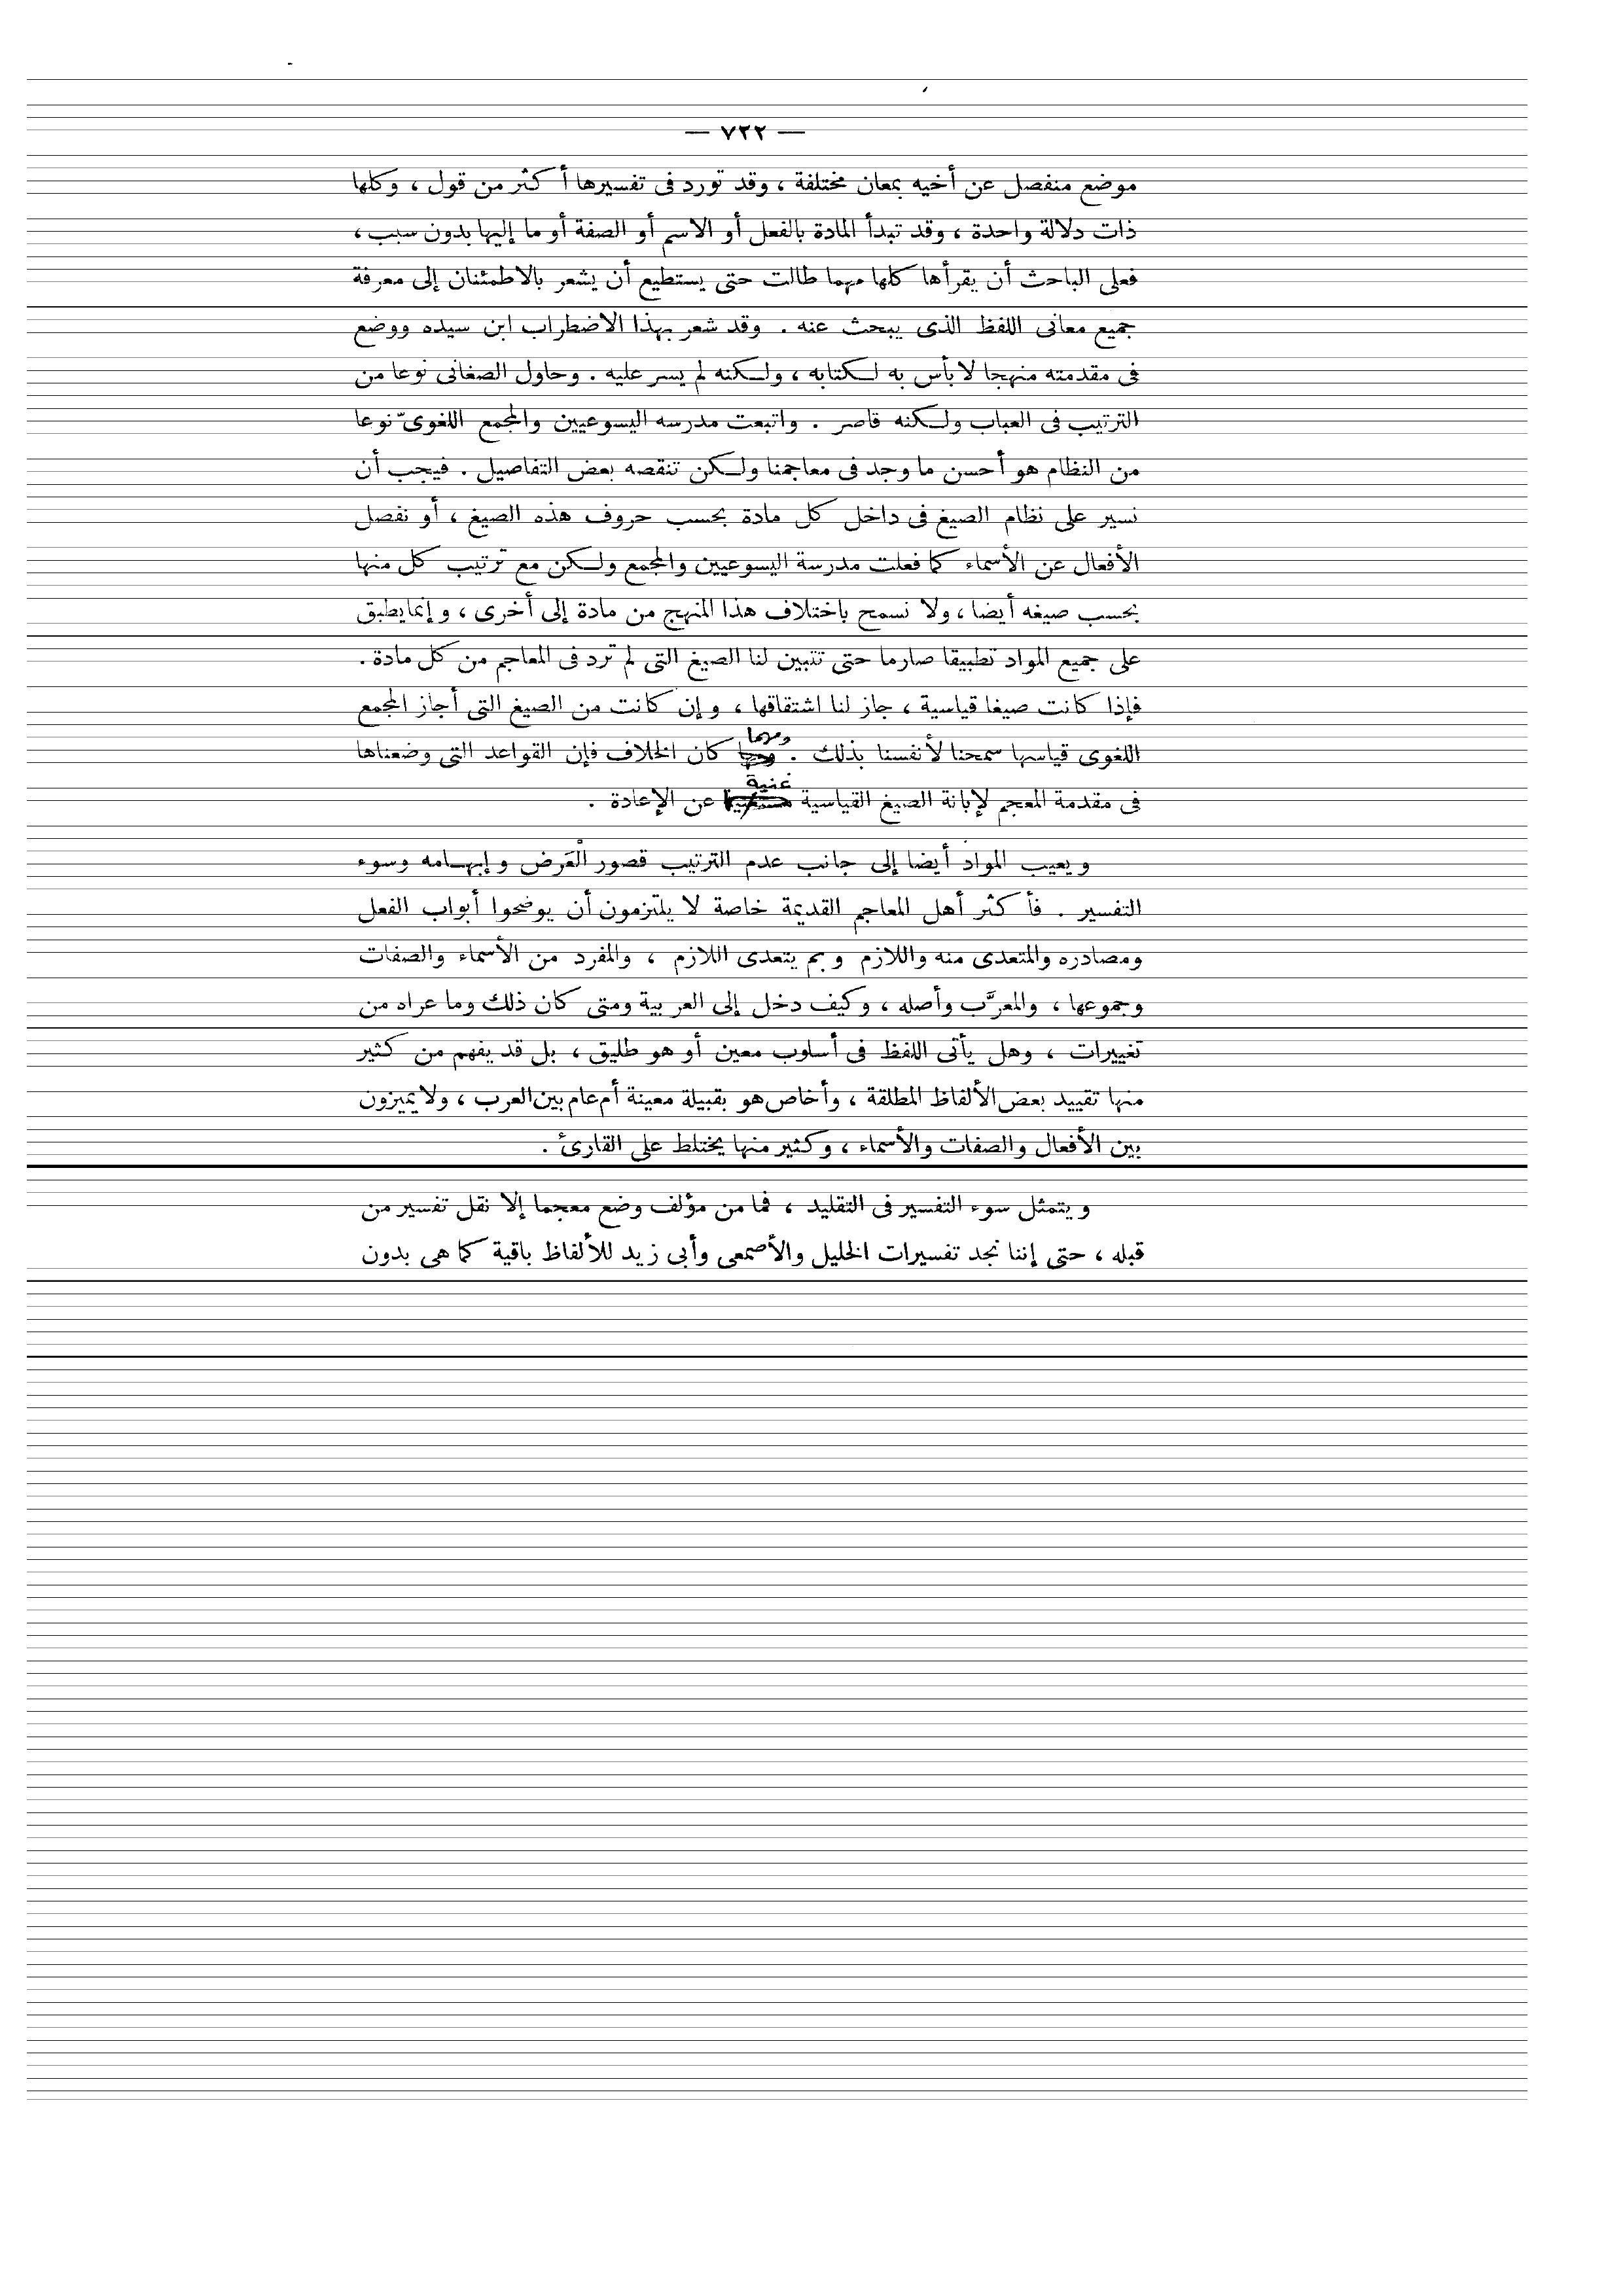 — ٧٢٢ —
موضع منفصل عن أخيه بمعان مختلفة ، وقد تورد فى تفسيرها أكثر من قول ، وكلها
ذات دلالة واحدة ، وقد تبدأ المادة بالفعل أو الاسم أو الصفة أو ما إليها بدون سبب ،
فعلى الباحث أن يقرأها كلها مهما طالت حتى يستطيع أن يشعر بالاطمئنان إلى معرفة
جميع معانى اللفظ الذى يبحث عنه . وقد شعر بهذا الاضطراب ابن سيده ووضع
فى مقدمته منهجا لا بأس به لكتابه ، ولكنه لم يسر عليه . وحاول الصغانى نوعا من
الترتيب فى العباب ولكنه قاصر . واتبعت مدرسه اليسوعيين والمجمع اللغوىّ نوعا
من النظام هو أحسن ما وجد فى معاجمنا ولكن تنقصه بعض التفاصيل . فيجب أن
نسير على نظام الصيغ فى داخل كل مادة بحسب حروف هذه الصيغ ، أو نفصل
الأفعال عن الأسماء كما فعلت مدرسة اليسوعيين والمجمع ولكن مع ترتيب كل منها
بحسب صيغه أيضا ، ولا نسمح باختلاف هذا المنهج من مادة إلى أخرى ، وإنما يطبق
على جميع المواد تطبيقا صارما حتى تتبين لنا الصيغ التى لم ترد فى المعاجم من كل مادة .
فإذا كانت صيغا قياسية ، جاز لنا اشتقاقها ، وإن كانت من الصيغ التى أجاز المجمع
اللغوى قياسها سمحنا لأنفسنا بذلك . ومهما كان الخلاف فإن القواعد التى وضعناها
فى مقدمة المعجم لإبانة الصيغ القياسية غنية عن الإعادة .
ويعيب المواد أيضا إلى جانب عدم الترتيب قصور الْعَرض وإبهامه وسوء
التفسير . فأكثر أهل المعاجم القديمة خاصة لا يلتزمون أن يوضحوا أبواب الفعل
ومصادره والمتعدى منه واللازم وبم يتعدى اللازم ، والمفرد من الأسماء والصفات
وجموعها ، والمعرَّب وأصله ، وكيف دخل إلى العربية ومتى كان ذلك وما عراه من
تغييرات ، وهل يأتى اللفظ فى أسلوب معين أو هو طليق ، بل قد يفهم من كثير
منها تقييد بعض الألفاظ المطلقة ، وأخاص هو بقبيلة معينة أم عام بين العرب ، ولا يميزون
بين الأفعال والصفات والأسماء ، وكثير منها يختلط على القارئ .
ويتمثل سوء التفسير فى التقليد ، فما من مؤلف وضع معجما إلا نقل تفسير من
قبله ، حتى إننا نجد تفسيرات الخليل والأصمعى وأبى زيد للألفاظ باقية كما هى بدون